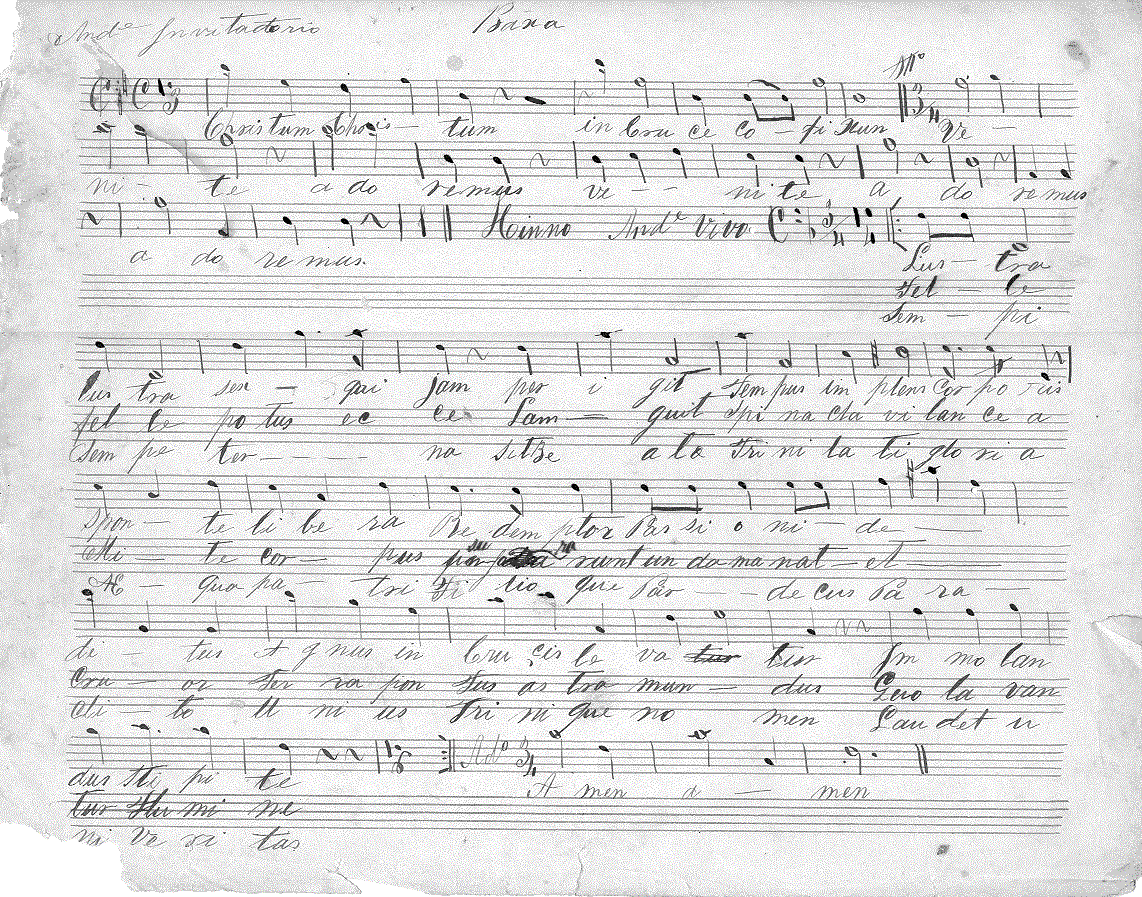 And.e Invitatorio Baxa
Christum Chris- tum in Cru ce co - fi xun Ve -
ni - te a do remus ve - - ni te a do remus
a do re mus. Hinno And.e Vivo. Lus - tra
Fel - le
Sem - pi
lus tra sex - qui jam per i git Tempus im plens Cor po ris
fel le po tus ec ce Lam - guit Spi na cla vi lan ce a
sem pe ter - - - - na sit Be a ta Tri ni ta ti glo ri a
Spon - te li be ra Re dem ptor Pas si o ni - de -
Mi - te cor - pus runt un da ma nat - et
Æ - qua pa - tri Fi lio que Par - - de cus Pa ra -
di - tus A gnus in Cru cis le va tur Im mo lan
Cru - or Ter ra pon tus as tra mun - dus Quo la van
cli - to U ni us Tri ni que no men Lau det u
dus Sti pi te A men a - men
tur flu mi ne
ni ve si tas